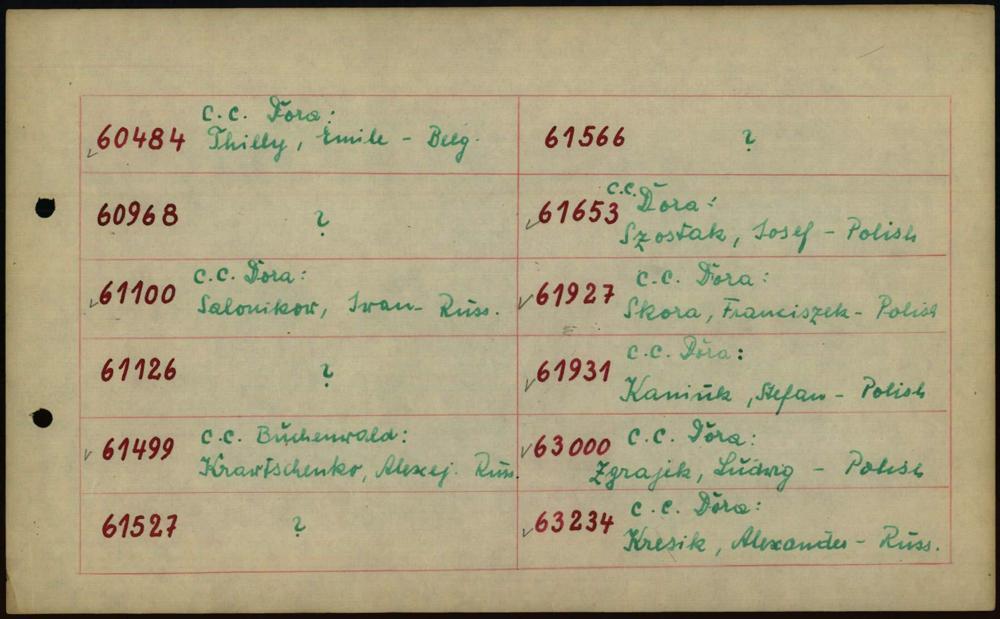 c.c. Dora:
60484 Thilly, Emile - Belg.
60968 ?
c.c. Dora:
61100 Salonikow, Iwan - Russ.
61126 ?
c.c. Buchenwald:
61499 Krawtschenko, Alexej. Russ.
61527 ?
61566 ?
c.c. Dora:
61653
Szostak, Josef - Polish
c.c. Dora:
61927
Skora, Franciszek - Polish
c.c. Dora:
61931
Kaniuk, Stefan - Polish
c.c. Dora:
63000
Zgrajek, Ludwig - Polish
c.c. Dora:
63234
Kresik, Alexander - Russ.